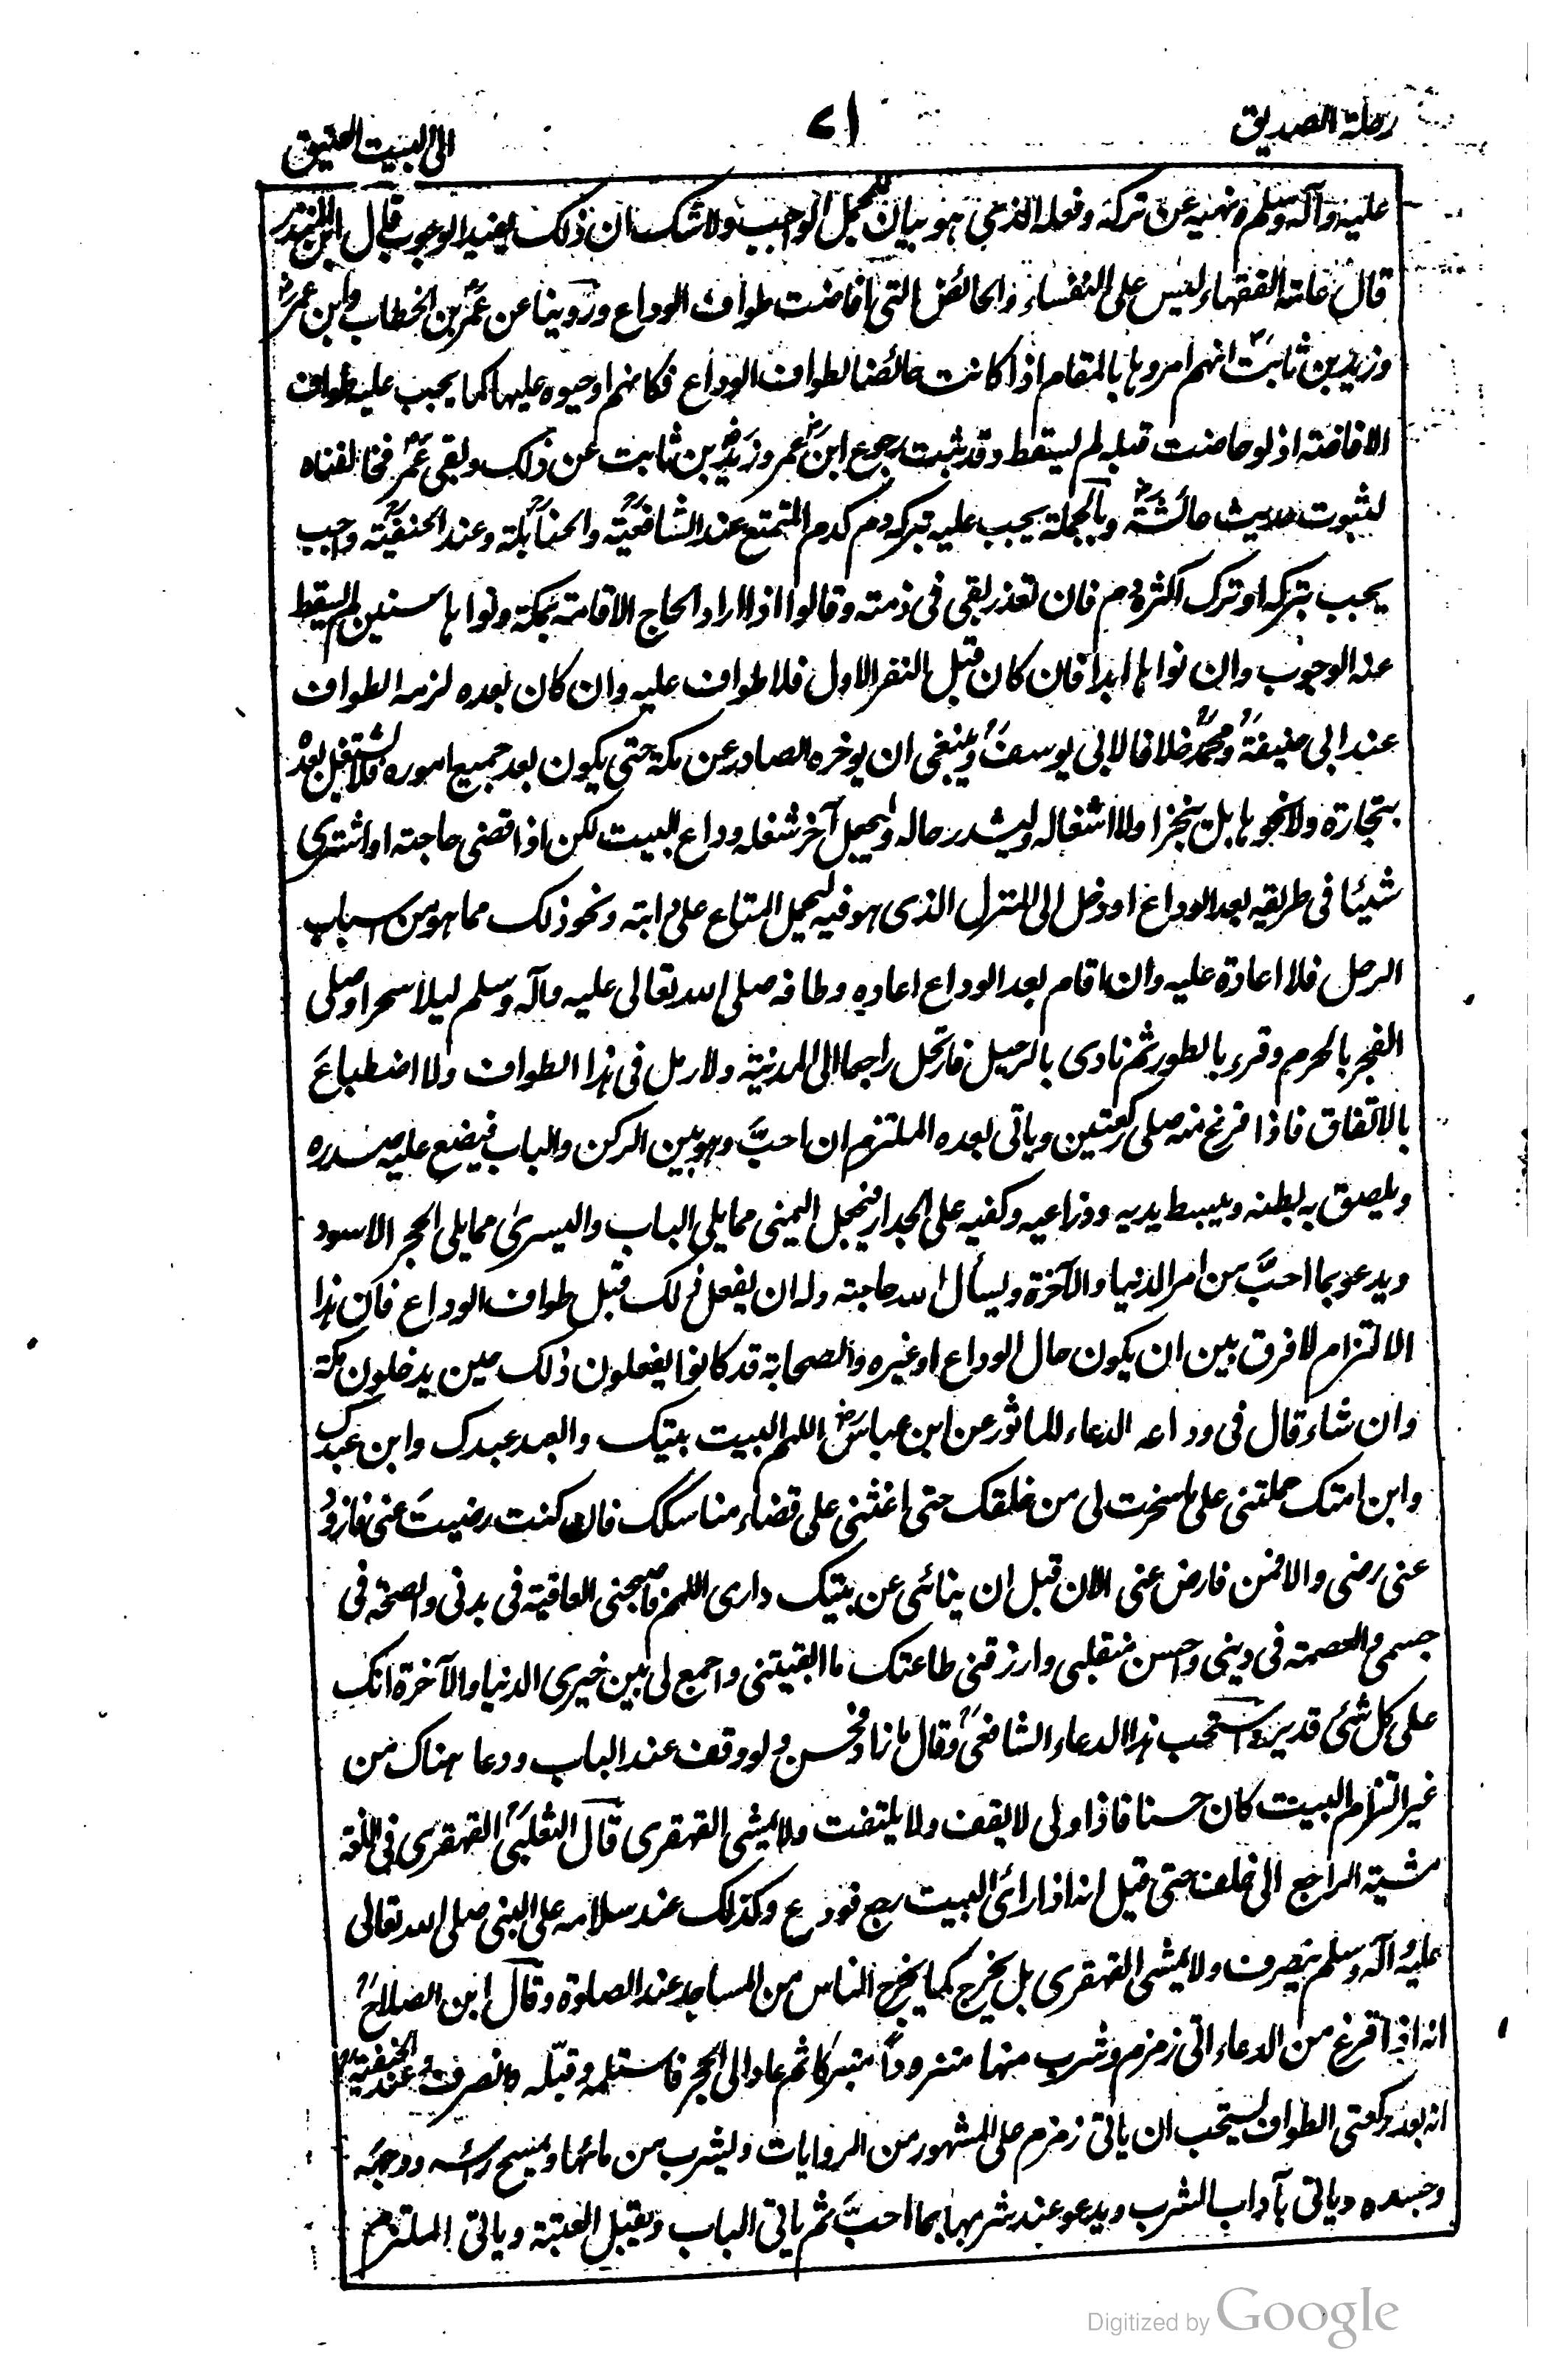 رحلة الصديق
٧١
الى البيت العتيق
عليه وآله وسلم ونهيه عن تركه وفعله الذي هو بيان لمجمل الواجب ولا شك ان ذلك يفيد الوجوب قال ابن المنذر
قال عامة الفقهاء ليس على النفساء والحائض التي افاضت طواف الوداع وروينا عن عمر بن الخطاب وابن عمر
وزيد بن ثابت انهم امروها بالمقام اذا كانت حائضا لطواف الوداع فكانهم اوجبوه عليها كما يجب عليه طواف
الافاضة اذ لو حاضت قبله لم يسقط وقد ثبت رجوع ابن عمر وزيد بن ثابت عن ذلك وبقي عمر فخالفناه
لثبوت حديث عائشة وبالجملة يجب عليه بتركه دم كدم المتمتع عند الشافعية والحنابلة وعند الحنفية واجب
يجب بتركه او ترك اكثره دم فان تعذر بقي في ذمته وقالوا اذا اراد الحاج الاقامة بمكة ونواها سنين لم يسقط
عنه الوجوب وان نواها ابدا فان كان قبل النفر الاول فلا طواف عليه وان كان بعده لزمه الطواف
عند ابي حنيفة ومحمد خلافا لابي يوسف وينبغي ان يوخره الصادر عن مكة حتى يكون بعد جميع اموره فلا يشتغل بعده
بتجارة ولا نحوها بل ينجز اولا اشغاله وليشد رحاله ويجعل آخر شغله وداع البيت لكن اذا قضى حاجته او اشترى
شيئا في طريقه بعد الوداع او دخل الى المنزل الذي هو فيه ليحمل المتاع على دابته ونحو ذلك مما هو من اسباب
الرحل فلا اعادة عليه وان اقام بعد الوداع اعاده وطافه صلى الله تعالى عليه وآله وسلم ليلا سحرا وصلى
الفجر بالحرم وقرء بالطور ثم نادى بالرحيل فارتحل راجعا الى المدينة ولا رمل في هذا الطواف ولا اضطباع
بالاتفاق فاذا فرغ منه صلى ركعتين وياتي بعده الملتزم ان احب وهو بين الركن والباب فيضع عليه صدره
ويلصق به بطنه ويبسط يديه وذراعيه وكفيه على الجدار فيجعل اليمنى مما يلي الباب واليسرى مما يلي الحجر الاسود
ويدعو بما احب من امر الدنيا والآخرة ويسأل الله حاجته وله ان يفعل ذلك قبل طواف الوداع فان هذا
الالتزام لا فرق بين ان يكون حال الوداع او غيره والصحابة قد كانوا يفعلون ذلك حين يدخلون مكة
وان شاء قال في وداعه الدعاء الماثور عن ابن عباس اللهم البيت بيتك والعبد عبدك وابن عبدك
وابن امتك حملتني على ما سخرت لي من خلقك حتى اغثتني على قضاء مناسكك فان كنت رضيت عني فازدد
عني رضى والا فمن فارض عني الان قبل ان ينائى عن بيتك داري اللهم فاصحبني العافية في بدني والصحة في
جسمي والعصمة في ديني واحسن منقلبي وارزقني طاعتك ما ابقيتني واجمع لي بين خيري الدنيا والآخرة انك
على كل شئ قدير واستحب هذا الدعاء الشافعي وقال ما زاد فحسن ولو وقف عند الباب ودعا هناك من
غير التزام البيت كان حسنا فاذا ولى لا يقف ولا يلتفت ولا يمشي القهقرى قال الثعلبي القهقرى في اللغة
مشية الراجع الى خلف حتى قيل انه اذا رائ البيت رجع فودع وكذلك عند سلامه على النبي صلى الله تعالى
عليه وآله وسلم ينصرف ولا يمشي القهقرى بل يخرج كما يخرج الناس من المساجد عند الصلوة وقال ابن الصلاح
انه اذا فرغ من الدعاء اتى زمزم وشرب منها متزودا متبركا ثم عاد الى الحجر فاستلمه وقبله وانصرف وعند الحنفية
انه بعد ركعتي الطواف يستحب ان ياتي زمزم على المشهور من الروايات وليشرب من مائها ويمسح راسه ووجهه
وجسده وياتي بآداب الشرب ويدعو عند شربها بما احب ثم ياتي الباب ويقبل العتبة وياتي الملتزم
Digitized by Google